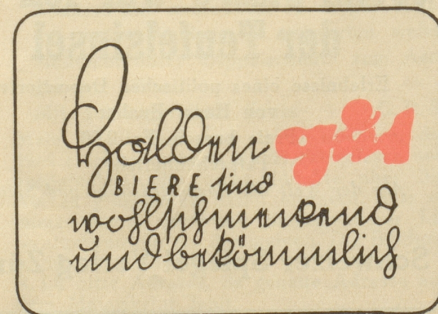 Halden gut
BIERE sind
wohlschmeckend
und bekömmlich